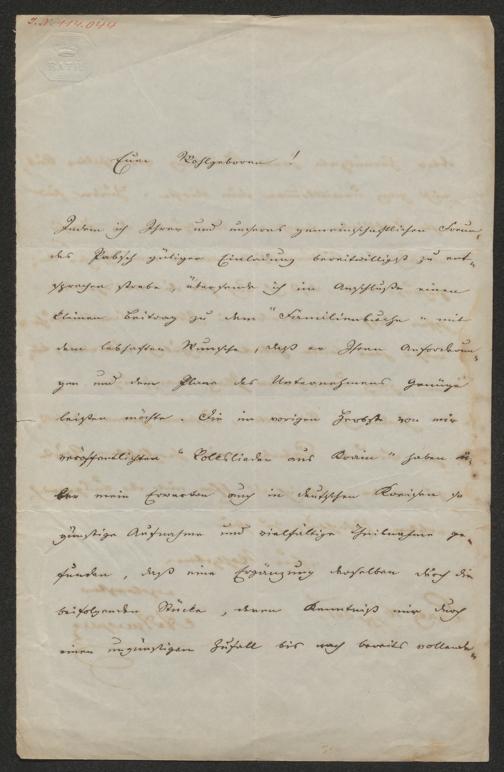 I. N. 114.044
BATH
Euer Wohlgeboren!
Indem ich Ihrer und unseres gemeinschaftlichen Freun-
des Pabsch gütiger Einladung bereitwilligst zu ent-
sprechen strebe, übersende ich im Anschluße einen
kleinen Beitrag zu dem "Familienbuche" mit
dem lebhaften Wunsche, daß er Ihren Anforderun-
gen und dem Plane des Unternehmens Genüge
leisten möchte. Die im vorigen Herbste von mir
veröffentlichten "Volkslieder aus Krain" haben ü-
ber mein Erwarten auch in deutschen Kreisen so
günstige Aufnahme und vielfältige Theilnahme ge-
funden, daß eine Ergänzung derselben durch die
beifolgenden Stücke, deren Kenntniß mir durch
einen ungünstigen Zufall bis nach bereits vollende-